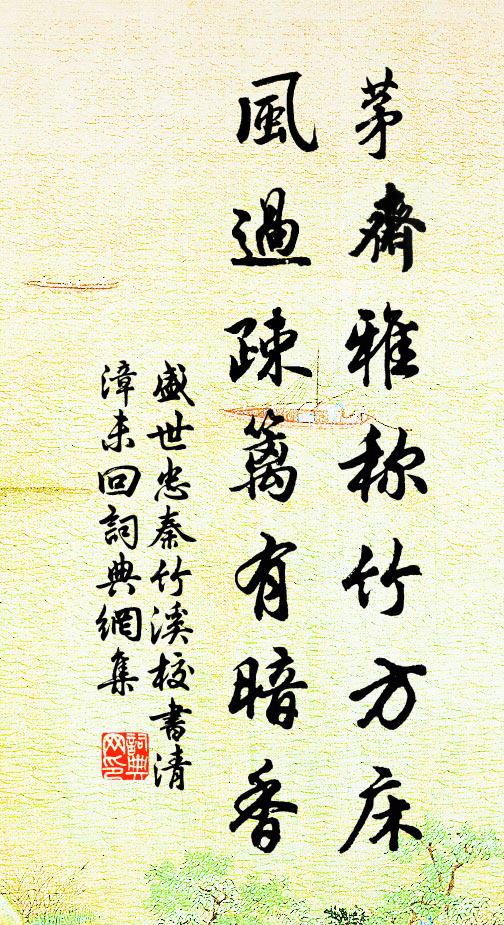 茅齋雅称竹方床
風過疎籬有暗香
盛世忠秦竹溪校書清
漳未回詞典網集
詞典网印